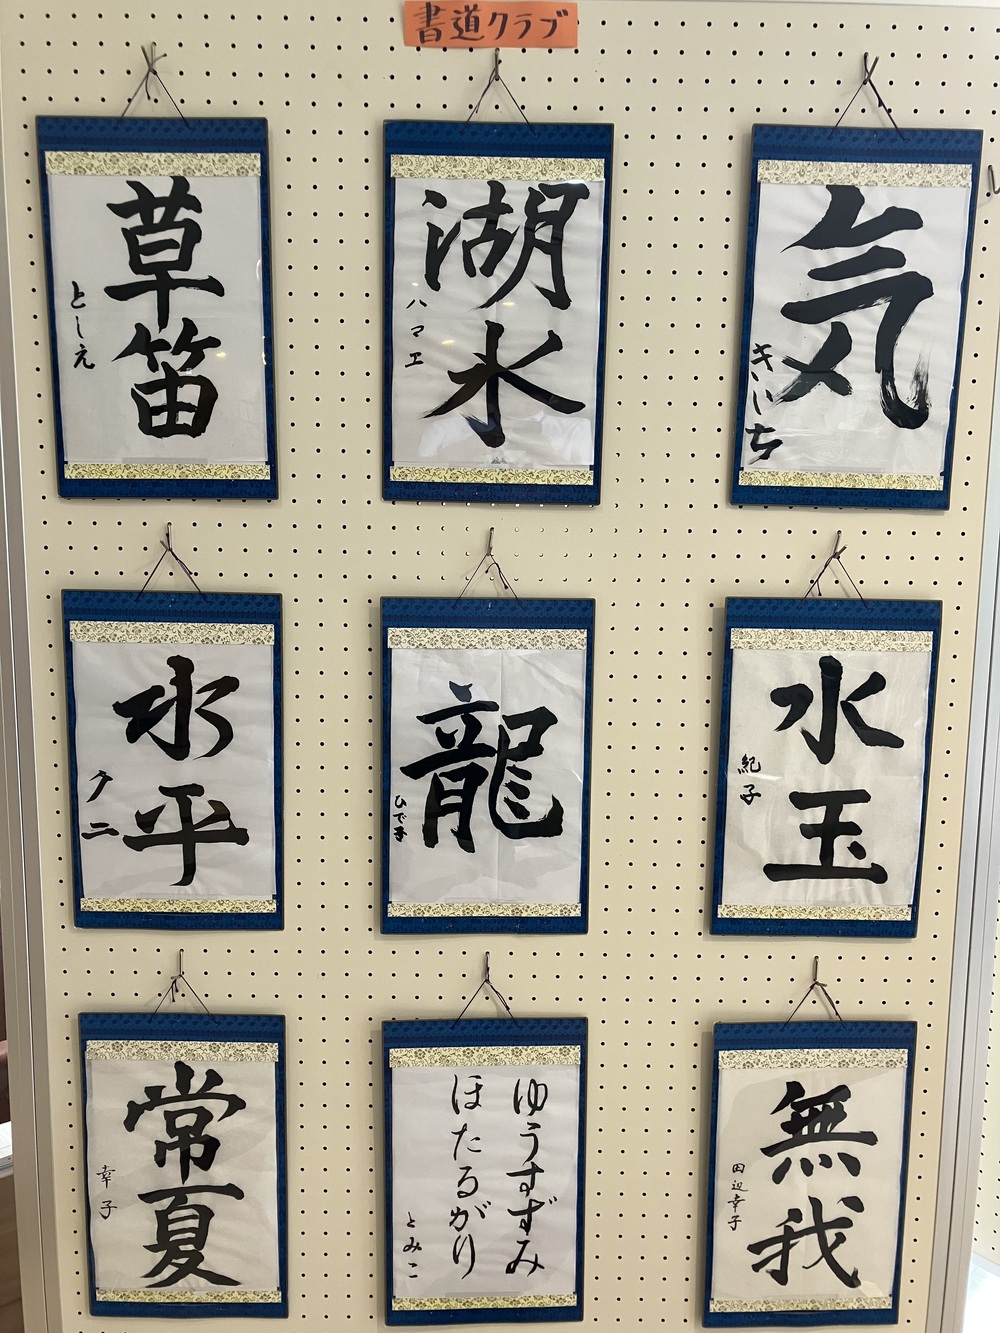 書道クラブ
草笛
としえ
湖水
ハマエ
気
きいち
水平
タニ
龍
ひで子
水玉
紀子
常夏
幸子
ゆうすずみ
ほたるがり
とみこ
無我
田辺幸子